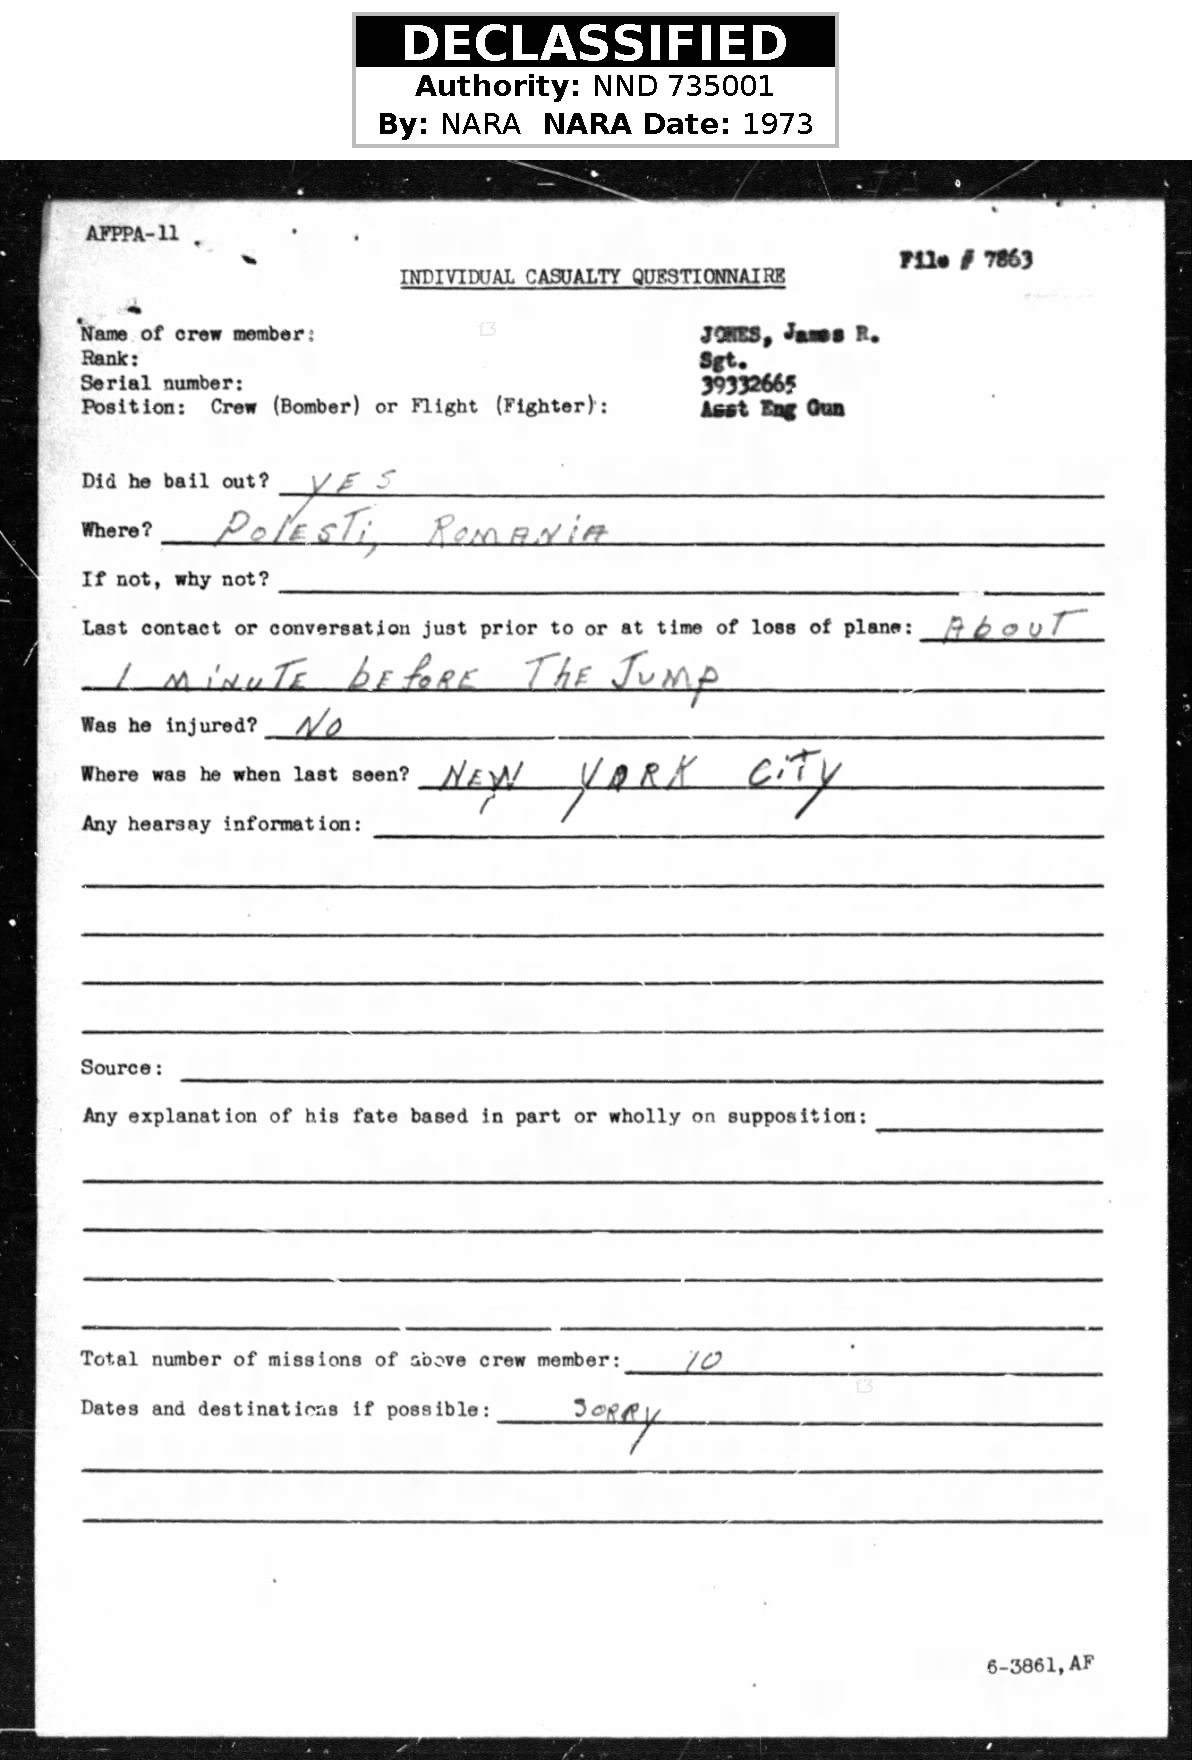 DECLASSIFIED
Authority: NND 735001
By: NARA NARA Date: 1973
AFPPA-11
File # 7863
INDIVIDUAL CASUALTY QUESTIONNAIRE
Name of crew member: JONES, James R.
Rank: Sgt.
Serial number: 39332665
Position: Crew (Bomber) or Flight (Fighter): Asst Eng Gun
Did he bail out? YES
Where? PolESTi, RomANiA
If not, why not?
Last contact or conversation just prior to or at time of loss of plane: AbouT
1 MiNuTE bEfoRE ThE JumP
Was he injured? No
Where was he when last seen? NEW YORK CiTY
Any hearsay information:
Source:
Any explanation of his fate based in part or wholly on supposition:
Total number of missions of above crew member: 10
Dates and destinations if possible: SoRRY
6-3861, AF